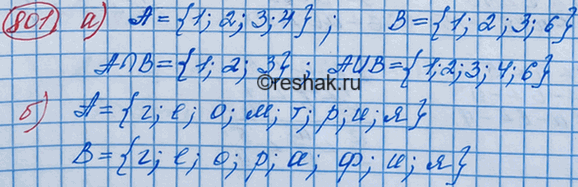 801 а) А = {1; 2; 3; 4}; В = {1; 2; 3; 6}
А∩В = {1; 2; 3}; А∪В = {1; 2; 3; 4; 6}
©reshak.ru
б) А = {г; е; о; м; т; р; и; я}
В = {г; е; о; р; а; ф; и; я}